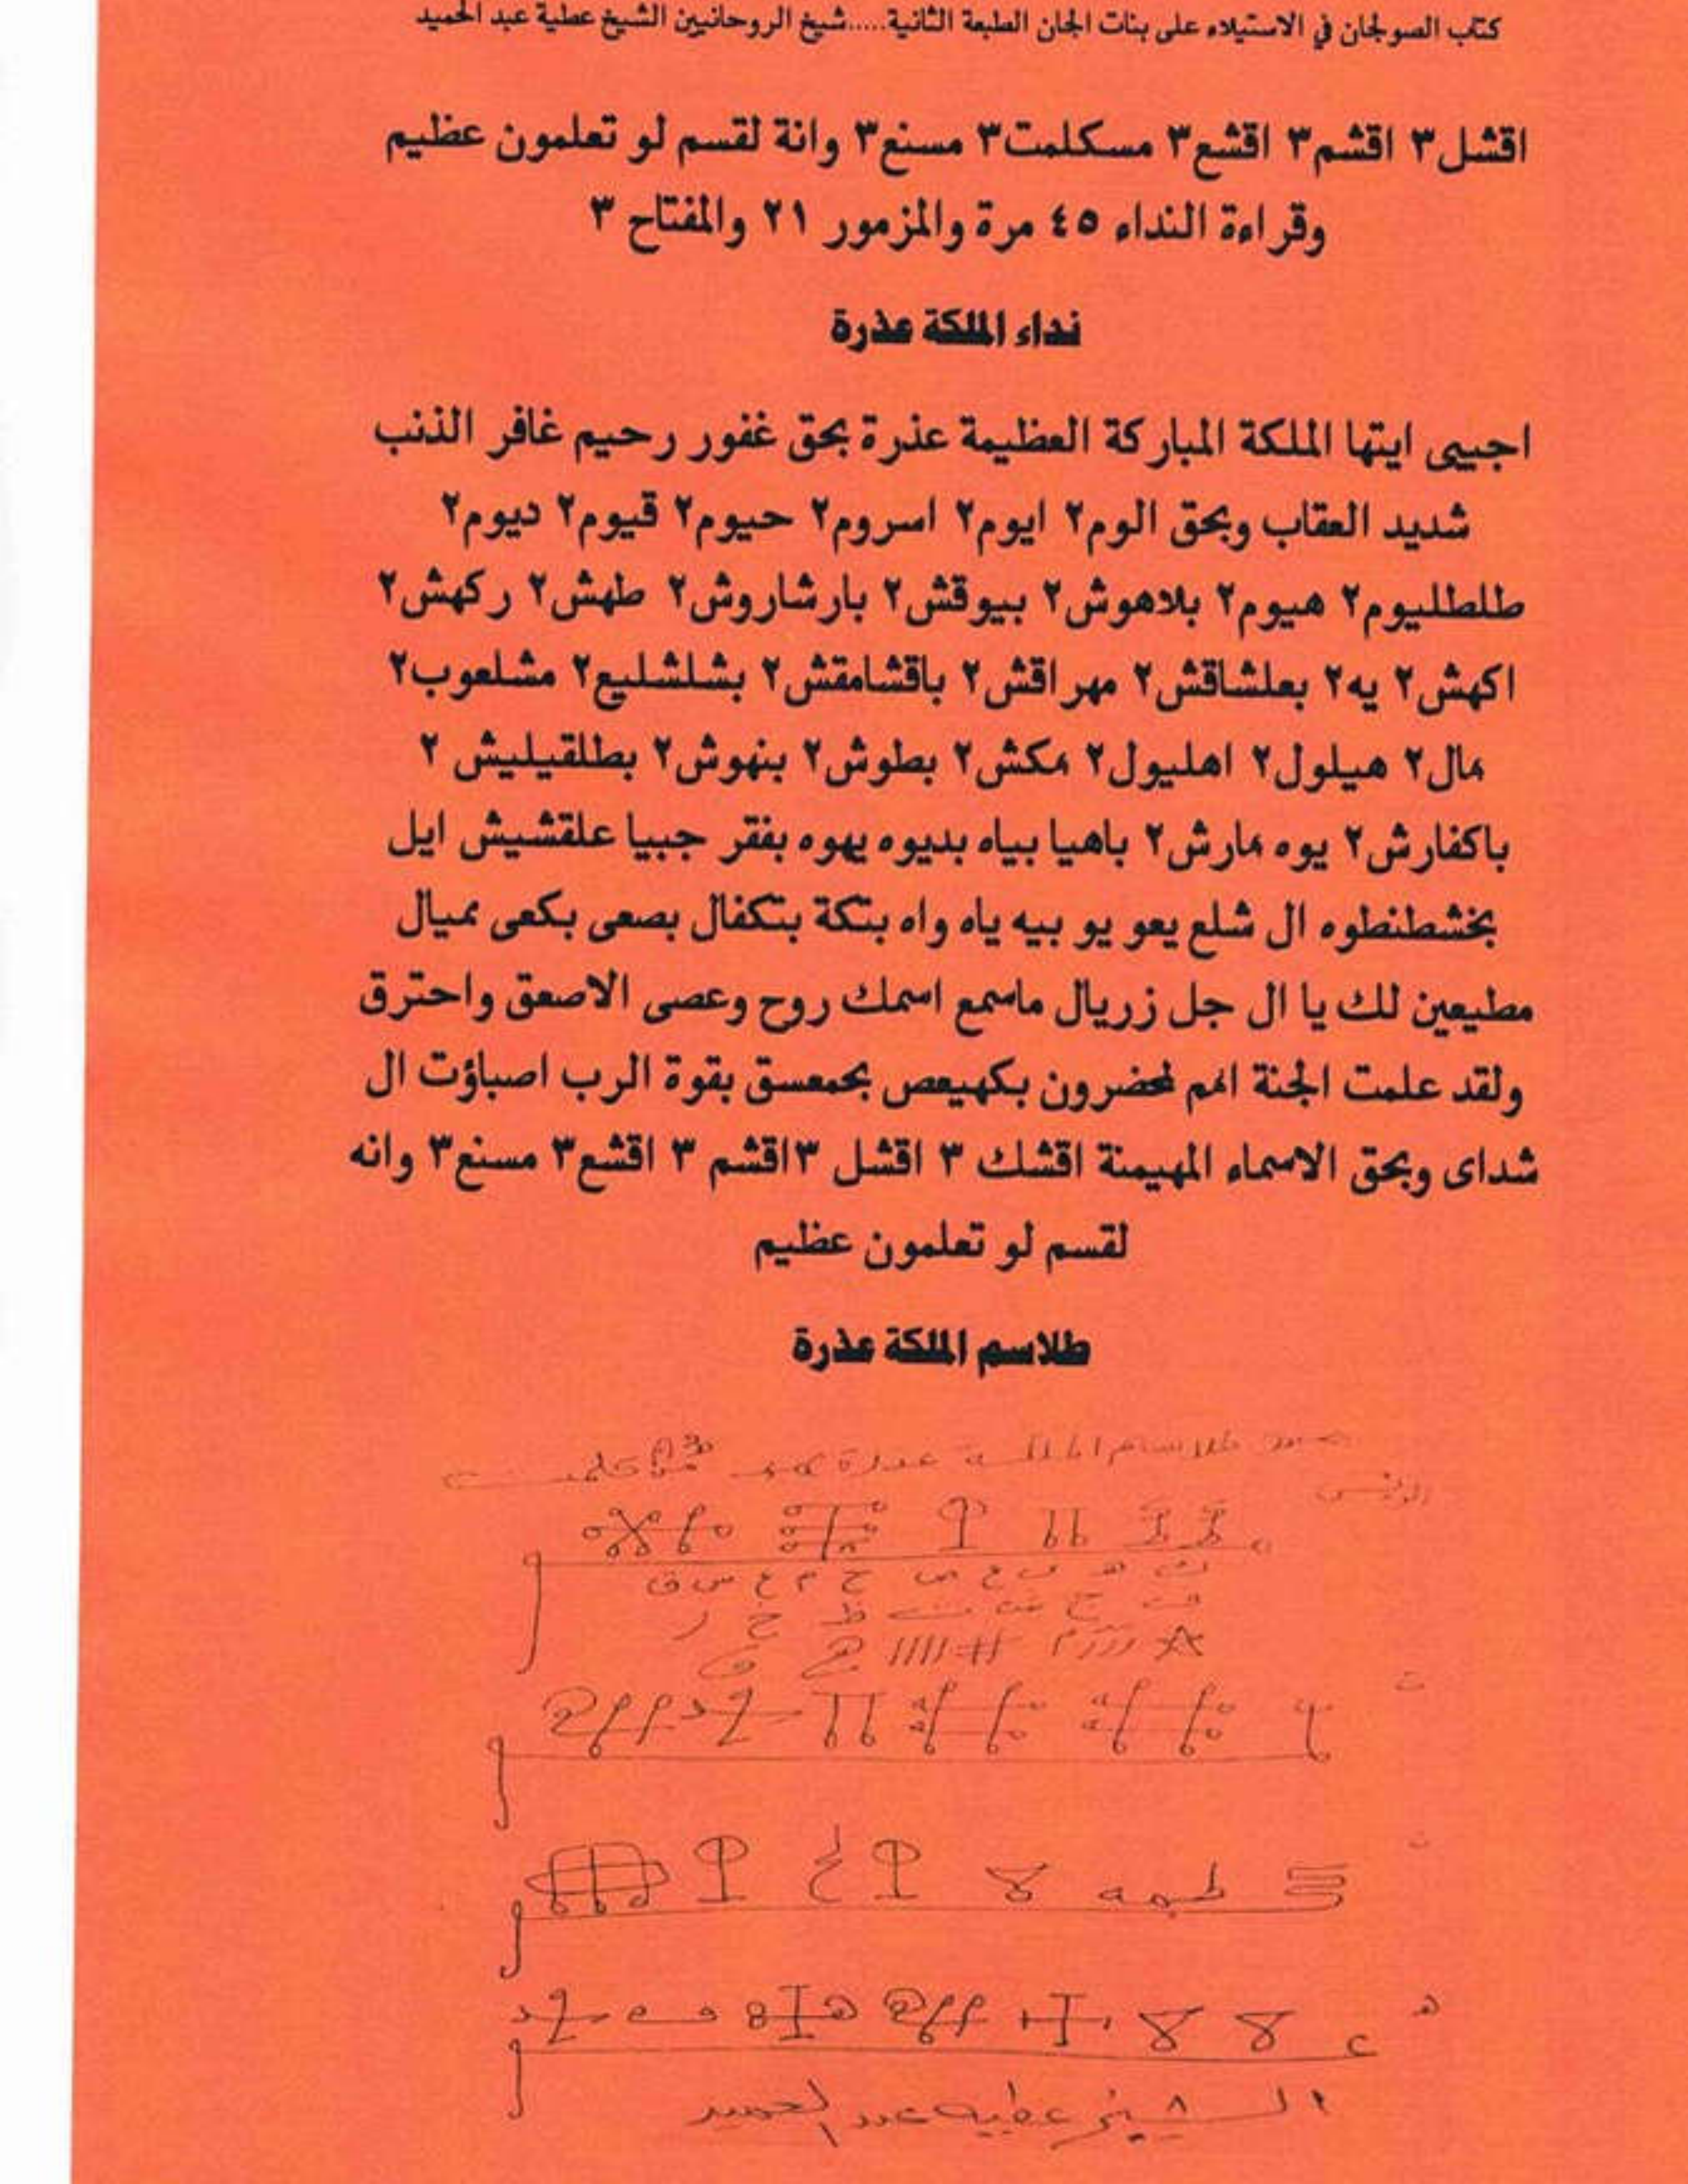 كتاب الصولجان في الاستيلاء على بنات الجان الطبعة الثانية.....شيخ الروحانيين الشيخ عطية عبد الحميد
اقشل٣ اقشم٣ اقشع٣ مسكلمت٣ مسنع٣ وانة لقسم لو تعلمون عظيم
وقراءة النداء ٤٥ مرة والمزمور ٢١ والمفتاح ٣
نداء الملكة عذرة
اجيبى ايتها الملكة المباركة العظيمة عذرة بحق غفور رحيم غافر الذنب
شديد العقاب وبحق الوم٢ ايوم٢ اسروم٢ حيوم٢ قيوم٢ ديوم٢
طلطليوم٢ هيوم٢ بلاهوش٢ بيوقش٢ بارشاروش٢ طهش٢ ركهش٢
اكهش٢ يه٢ بعلشاقش٢ مهراقش٢ باقشامقش٢ بشلشليع٢ مشلعوب٢
مال٢ هيلول٢ اهليول٢ مكش٢ بطوش٢ بنهوش٢ بطلقيليش ٢
باكفارش٢ يوه مارش٢ باهيا بياه بديوه يهوه بفقر جبيا علقشيش ايل
بخشطنطوه ال شلع يعو يو بيه ياه واه بتكة بتكفال بصعى بكعى مميال
مطيعين لك يا ال جل زريال ماسمع اسمك روح وعصى الاصعق واحترق
ولقد علمت الجنة انهم لمحضرون بكهيعص بحمعسق بقوة الرب اصباؤت ال
شداى وبحق الاسماء المهيمنة اقشك ٣ اقشل ٣اقشم ٣ اقشع٣ مسنع٣ وانه
لقسم لو تعلمون عظيم
طلاسم الملكة عذرة
طلاسم الملكة عذرة
ك ه ي ع ص ح م ع س ق
الشيخ عطيه عبد الحميد